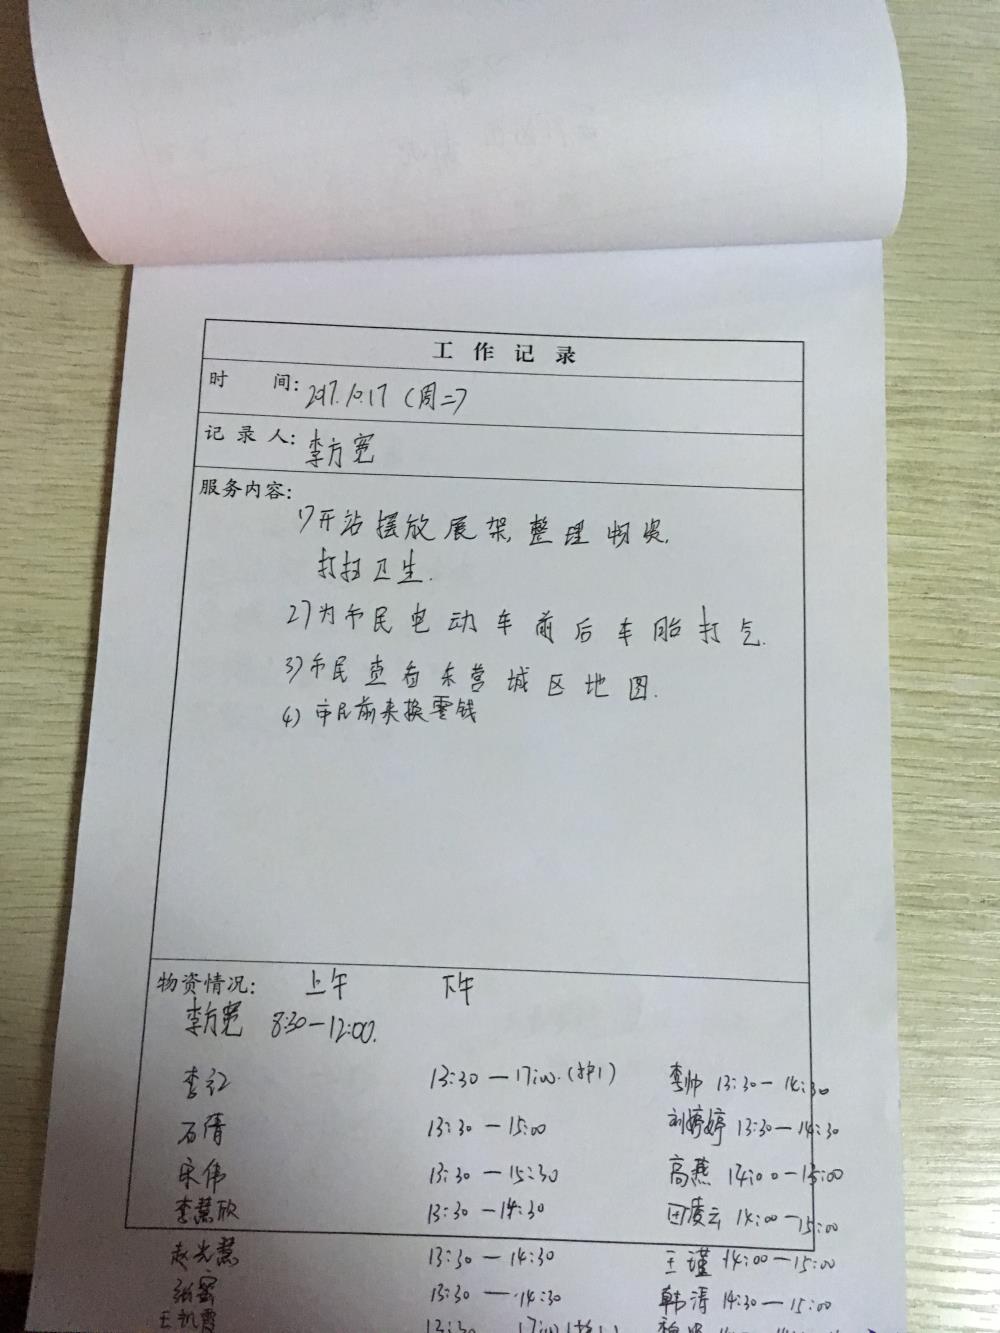 工作记录
时 间: 2017.10.17 (周二)
记录人: 李方宽
服务内容:
1)开站摆放展架,整理物资,
打扫卫生.
2)为市民电动车前后车胎打气.
3)市民查看东营城区地图.
4)市民前来换零钱
物资情况: 上午 下午
李方宽 8:30—12:00.
李红 13:30—17:00. 李帅 13:30—14:30
石倩 13:30—15:00 刘婷婷 13:30—14:30
宋伟 13:30—15:30 高燕 14:00—15:00
李慧欣 13:30—14:30 田凌云 14:00—15:00
赵光慧 13:30—14:30 王瑾 14:00—15:00
张蜜 13:30—14:30 韩涛 14:30—15:00
王凯霞 13:30—17:00